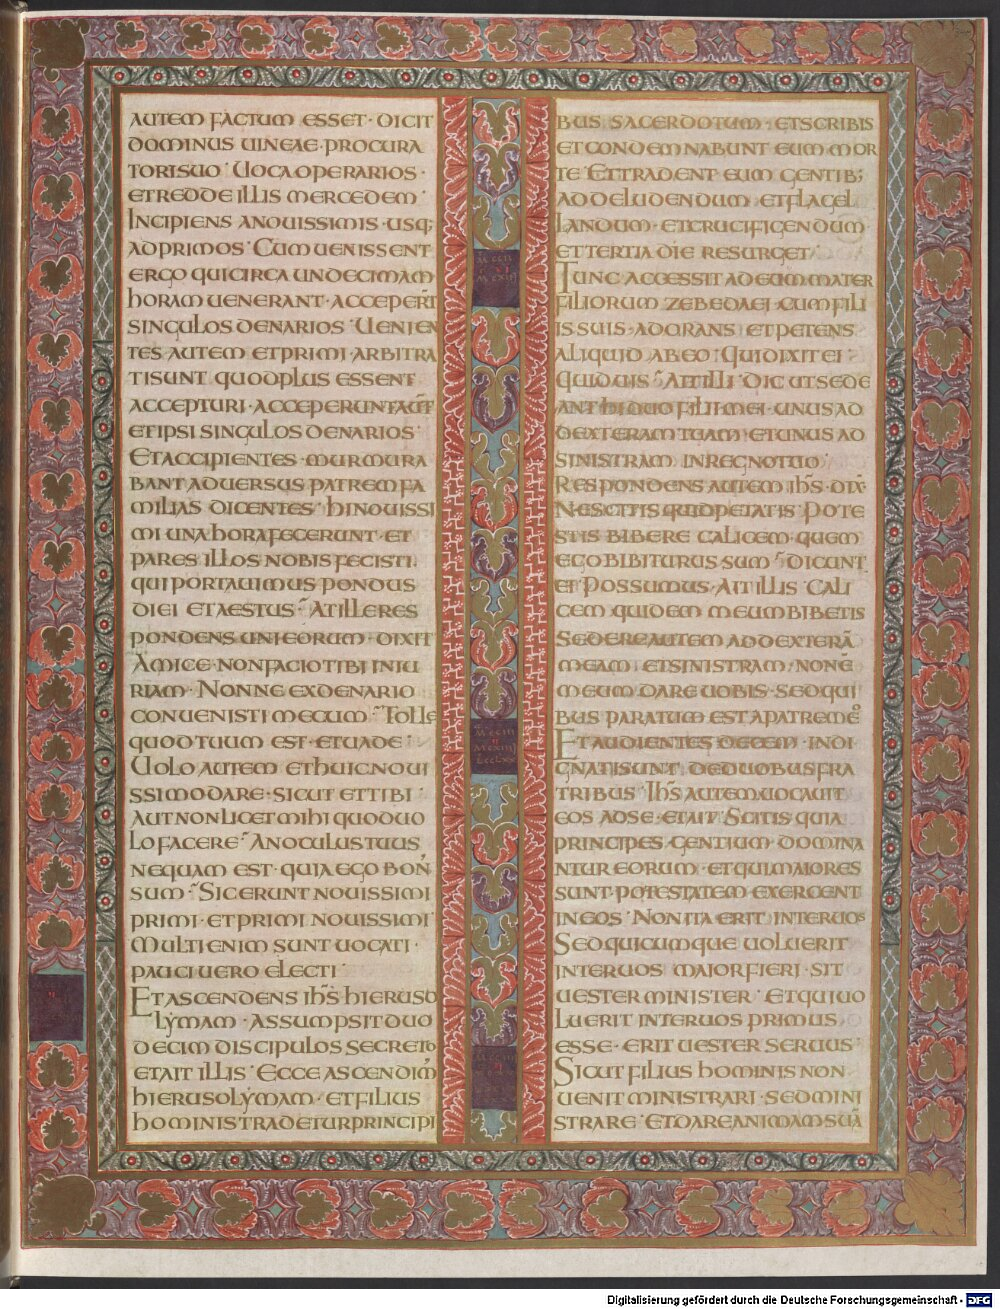 AUTEM FACTUM ESSET · DICIT
DOMINUS UINEAE · PROCURA
TORISUO · UOCAOPERARIOS ·
ETREDDE ILLIS MERCEDEM
INCIPIENS ANOUISSIMIS · USQ;
ADPRIMOS · CUM UENISSENT
ERGO QUICIRCA UNDECIMAM
HORAM UENERANT · ACCEPER̄T
SINGULOS DENARIOS · UENIEN
TES AUTEM ETPRIMI · ARBITRA
TISUNT QUODPLUS ESSENT
ACCEPTURI · ACCEPERUNTAŪT
ETIPSI SINGULOS DENARIOS ·
ETACCIPIENTES · MURMURA
BANT ADUERSUS PATREM FA
MILIAS DICENTES · HINOUISSI
MI UNAHORAFECERUNT · ET
PARES ILLOS NOBIS FECISTI ·
QUIPORTAUIMUS PONDUS
DIEI ETAESTUS · ATILLERES
PONDENS UNIEORUM · DIXIT
AMICE · NONFACIOTIBI INIU
RIAM · NONNE EXDENARIO
CONUENISTI MECUM · TOLLE
QUODTUUM EST · ETUADE ·
UOLO AUTEM ETHUICNOUI
SSIMODARE · SICUT ETTIBI ·
AUTNONLICETMIHI QUODUO
LOFACERE · ANOCULUSTUUS
NEQUAM EST · QUIAEGO BON̄
SUM · SICERUNT NOUISSIMI
PRIMI · ETPRIMI NOUISSIMI
MULTIENIM SUNT UOCATI ·
PAUCIUERO ELECTI ·
ETASCENDENS IHS̄ HIERUSO
LYMAM · ASSUMPSITDUO
DECIM DISCIPULOS SECRETO
ETAIT ILLIS · ECCE ASCENDIM̄
HIERUSOLYMAM · ETFILIUS
HOMINISTRADETURPRINCIPI
BUS SACERDOTUM · ETSCRIBIS
ETCONDEMNABUNT EUM MOR
TE · ETTRADENT EUM GENTIB;
ADDELUDENDUM · ETFLAGEL
LANDUM · ETCRUCIFIGENDUM
ETTERTIA DIE RESURGET ·
TUNC ACCESSIT ADEUM MATER
FILIORUM ZEBEDAEI · CUM FILI
IS SUIS · ADORANS ETPETENS
ALIQUID ABEO · QUIDIXITEI ·
QUIDUIS · AITILLI · DIC UTSEDE
ANT HIDUO FILII MEI · UNUSAD
DEXTERAM TUAM · ETUNUS AD
SINISTRAM INREGNOTUO ·
RESPONDENS AUTEM IHS̄ · DIX̄
NESCITIS QUIDPETATIS · POTE
STIS BIBERE CALICEM · QUEM
EGO BIBITURUS SUM · DICUNT
EI · POSSUMUS · AITILLIS · CALI
CEM QUIDEM MEUM BIBETIS
SEDEREAUTEM ADDEXTERĀ
MEAM · ETSINISTRAM · NONĒ
MEUM DARE UOBIS · SEDQUI
BUS PARATUM ESTAPATREMEO
ETAUDIENTES DECEM · INDI
GNATISUNT DEDUOBUSFRA
TRIBUS · IHS̄ AUTEM UOCAUIT
EOS ADSE · ETAIT · SCITIS QUIA
PRINCIPES GENTIUM DOMINA
NTUR EORUM · ETQUIMAIORES
SUNT · POTESTATEM EXERCENT
INEOS · NONITA ERIT INTERUOS
SEDQUICUMQUE UOLUERIT
INTERUOS MAIORFIERI · SIT
UESTER MINISTER · ETQUIUO
LUERIT INTERUOS PRIMUS
ESSE · ERIT UESTER SERUUS ·
SICUT FILIUS HOMINIS NON
UENIT MINISTRARI · SEDMINI
STRARE · ETDAREANIMAMSUĀ
Digitalisierung gefördert durch die Deutsche Forschungsgemeinschaft - DFG